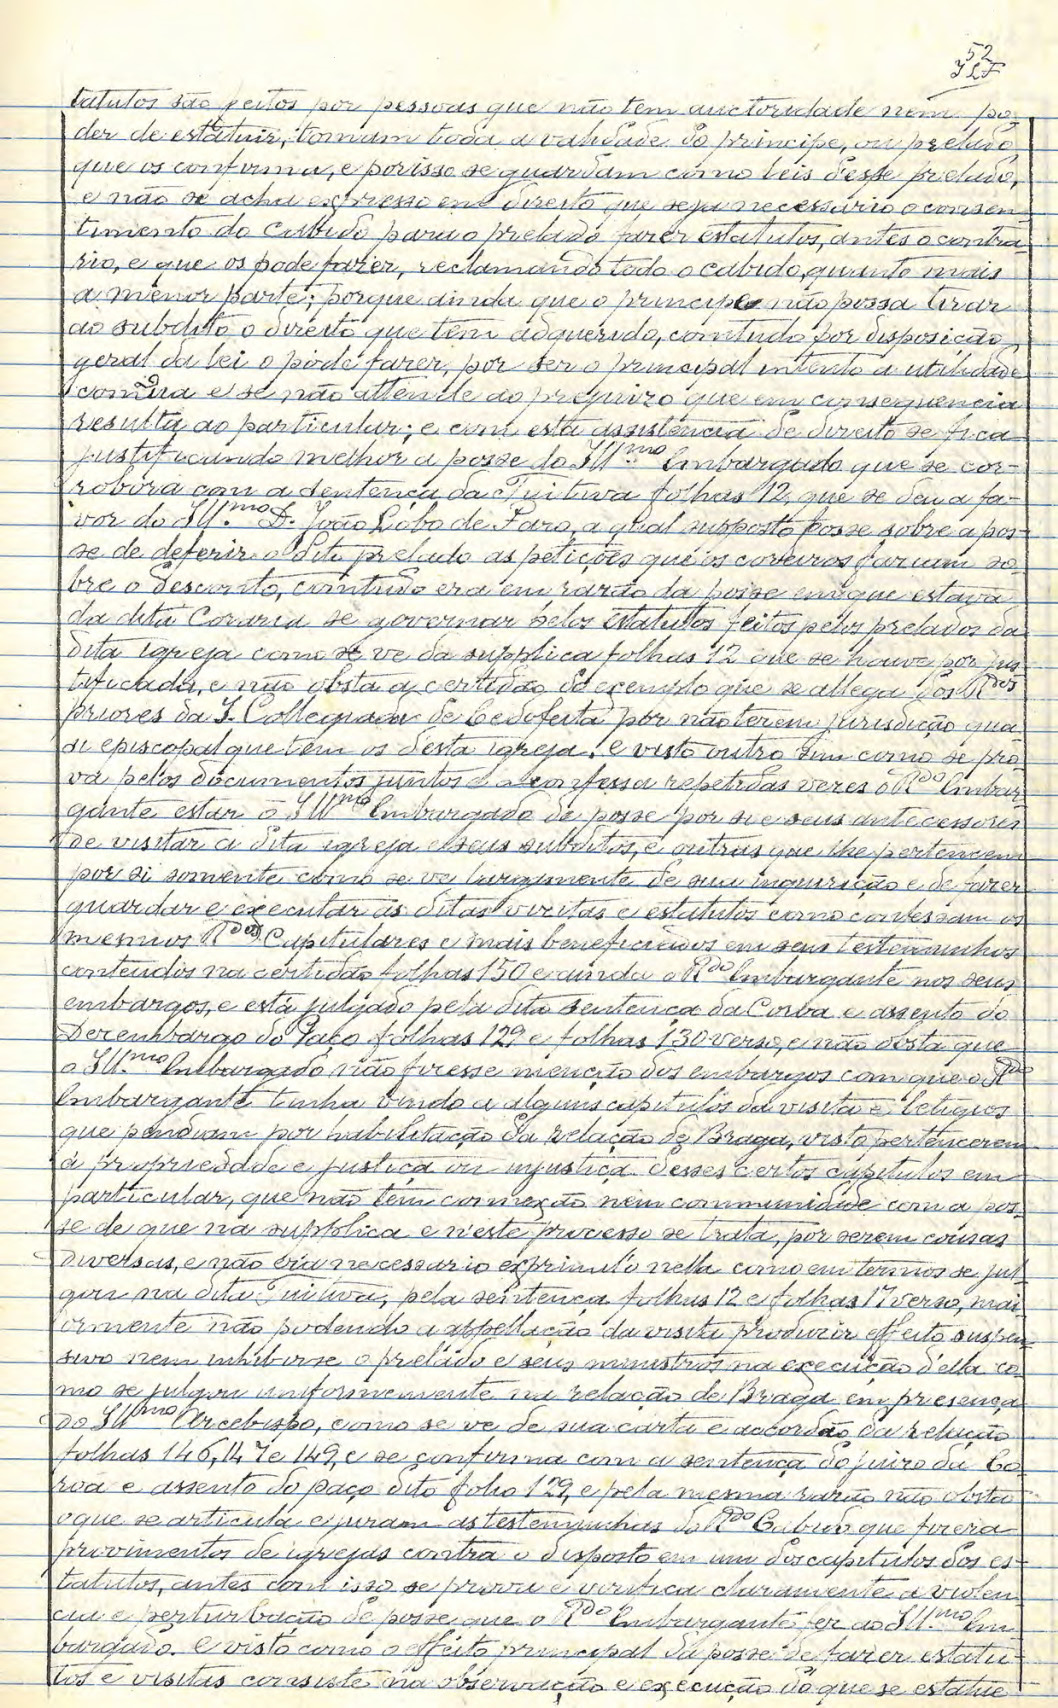 52
tatutos são feitos por pessoas que não tem auctoridade nem po-
der de estatuir, tomam toda a validade do principe, ou prelado
que os confirma, e porisso se guardam como leis desse prelado,
e não se acha expresso em direito que seja necessario o consen-
timento do cabido para o prelado fazer estatutos, antes o contra-
rio, e que os pode fazer, reclamando todo o cabido, quanto mais
a menor parte; porque ainda que o principe não possa tirar
ao subdito o direito que tem adquerido, comtudo por disposição
geral da lei o póde fazer, por ser o principal intento a utilidade
comũa e se não attende ao prejuizo que em consequencia
resulta ao particular; e com esta assistencia de direito se fica
justificando melhor a posse do Ill.mo Embargado que se cor-
robora com a sentença da Tuitiva folhas 12 que se deu a fa-
vor do Ill.mo D. João Lobo de Faro, a qual supposto fosse sobre a pos-
se de deferir o dito prelado as petições que os coreiros faziam so-
bre o desconto, comtudo era em razão da posse em que estava
da dita Coraria se governar pelos estatutos feitos pelos prelados da
dita igreja como se ve da supplica folhas 12 que se houve por jus-
tificada, e não obsta a certidão do exemplo que se allega dos R.dos
priores da I. Collegiada de Cedofeita por não terem jurisdição qua-
si episcopal que tem os desta igreja. E visto outro sim como se pro-
va pelos documentos juntos e confessa repetidas vezes o R.do Embar-
gante estar o Ill.mo Embargado de posse por si e seus antecessores
de visitar a dita igreja e seus subditos, e outras que lhe pertencem
por si somente como se ve largamente de sua inquirição e de fazer
guardar e executar as ditas visitas e estatutos como confessam os
mesmos R.dos Capitulares e mais beneficiados em seus testemunhos
contendos na certidão folhas 150 e ainda o R.do Embargante nos seus
embargos, e está julgado pela dita sentença da Coroa e assento do
Dezembargo do Paço folhas 129 e folhas 130 verso, e não obsta que
o Ill.mo Embargado não fizesse menção dos embargos com que o R.do
Embargante tinha vindo a alguns capitulos da visita e letigios
que pendiam por habilitação da relação de Braga, visto pertencerem
á propriedade e justiça ou injustiça desses certos capitulos em
particular, que não têm connexão nem communidade com a pos-
se de que na supplica e n'este processo se trata, por serem cousas
diversas, e não era necessario exprimil'o nella como em termos se jul-
gou na dita Tuitiva, pela sentença folhas 12 e folhas 17 verso, mai-
ormente não podendo a appellação da visita produzir effeito suspen-
sivo nem inhibirse o prelado e seus ministros na execução d'ella co-
mo se julgou uniformemente na relação de Braga em presença
do Ill.mo Arcebispo, como se ve de sua carta e accordão da relação
folhas 146, 147 e 149, e se confirma com a sentença do juizo da Co-
roa e assento do paço dito folio 129, e pela mesma razão não obsta
o que se articula e juram as testemunhas do R.do Cabido que fizera
provimentos de igrejas contra o disposto em um dos capitulos dos es-
tatutos, antes com isso se prova e verifica claramente a violen-
cia e perturbação de posse que o R.do Embargante fez ao Ill.mo Em-
bargado. E visto como o effeito principal da posse de fazer estatu-
tos e visitas consiste na observação e execução do que se estatue